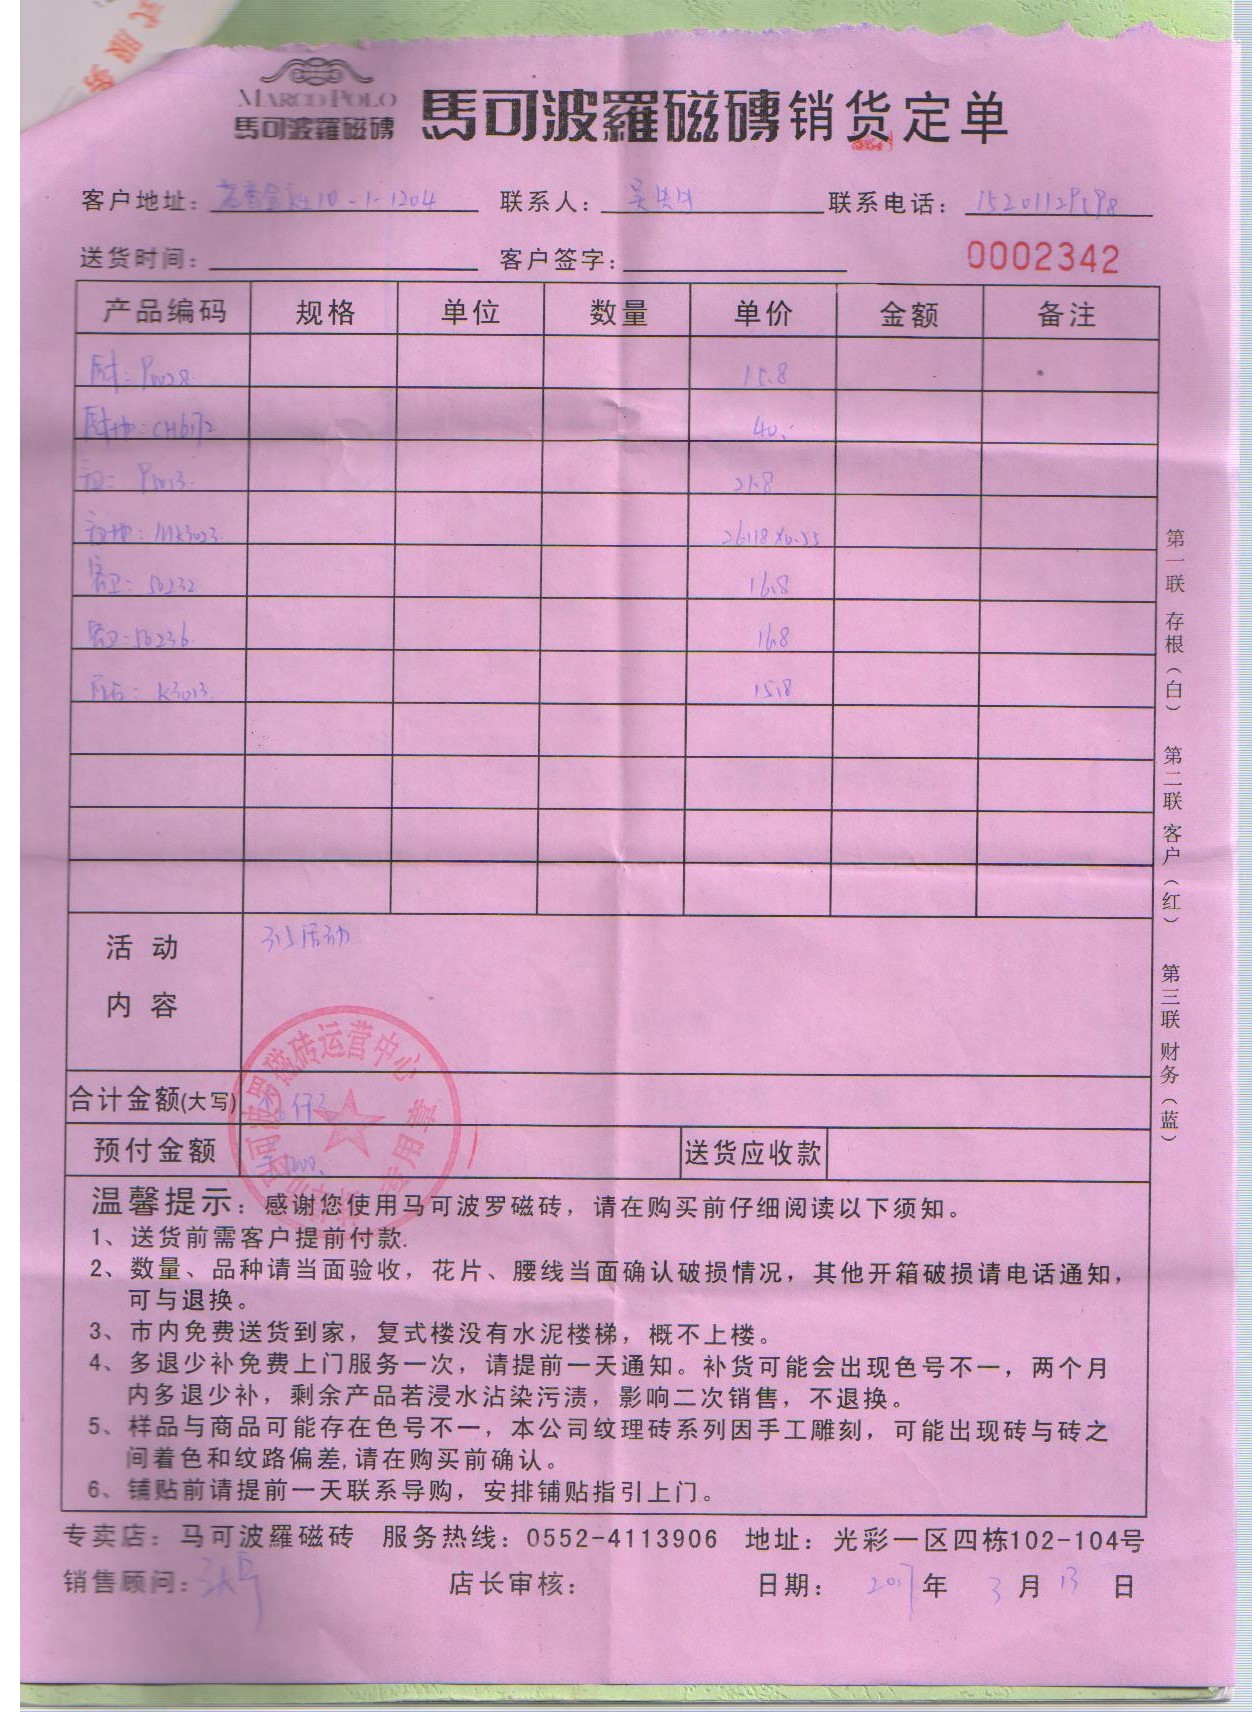 MARCO POLO
馬可波羅磁磚
馬可波羅磁磚销货定单
客户地址： 10-1-1204 联系人：吴 联系电话：
送货时间： 客户签字： 0002342
产品编码 规格 单位 数量 单价 金额 备注
15.8
厨地：CH6172 40.-
21.8
26118×0.55
客卫：50232 16.8
客卫：50236. 16.8
K3013. 15.8
活动
内容
315活动
合计金额(大写)
预付金额
送货应收款
波罗磁砖运营中心
专用章
温馨提示：感谢您使用马可波罗磁砖，请在购买前仔细阅读以下须知。
1、送货前需客户提前付款.
2、数量、品种请当面验收，花片、腰线当面确认破损情况，其他开箱破损请电话通知，
可与退换。
3、市内免费送货到家，复式楼没有水泥楼梯，概不上楼。
4、多退少补免费上门服务一次，请提前一天通知。补货可能会出现色号不一，两个月
内多退少补，剩余产品若浸水沾染污渍，影响二次销售，不退换。
5、样品与商品可能存在色号不一，本公司纹理砖系列因手工雕刻，可能出现砖与砖之
间着色和纹路偏差,请在购买前确认。
6、铺贴前请提前一天联系导购，安排铺贴指引上门。
专卖店：马可波羅磁砖 服务热线：0552-4113906 地址：光彩一区四栋102-104号
销售顾问： 店长审核： 日期：2017年 3月 13日
第一联 存根（白） 第二联 客户（红） 第三联 财务（蓝）